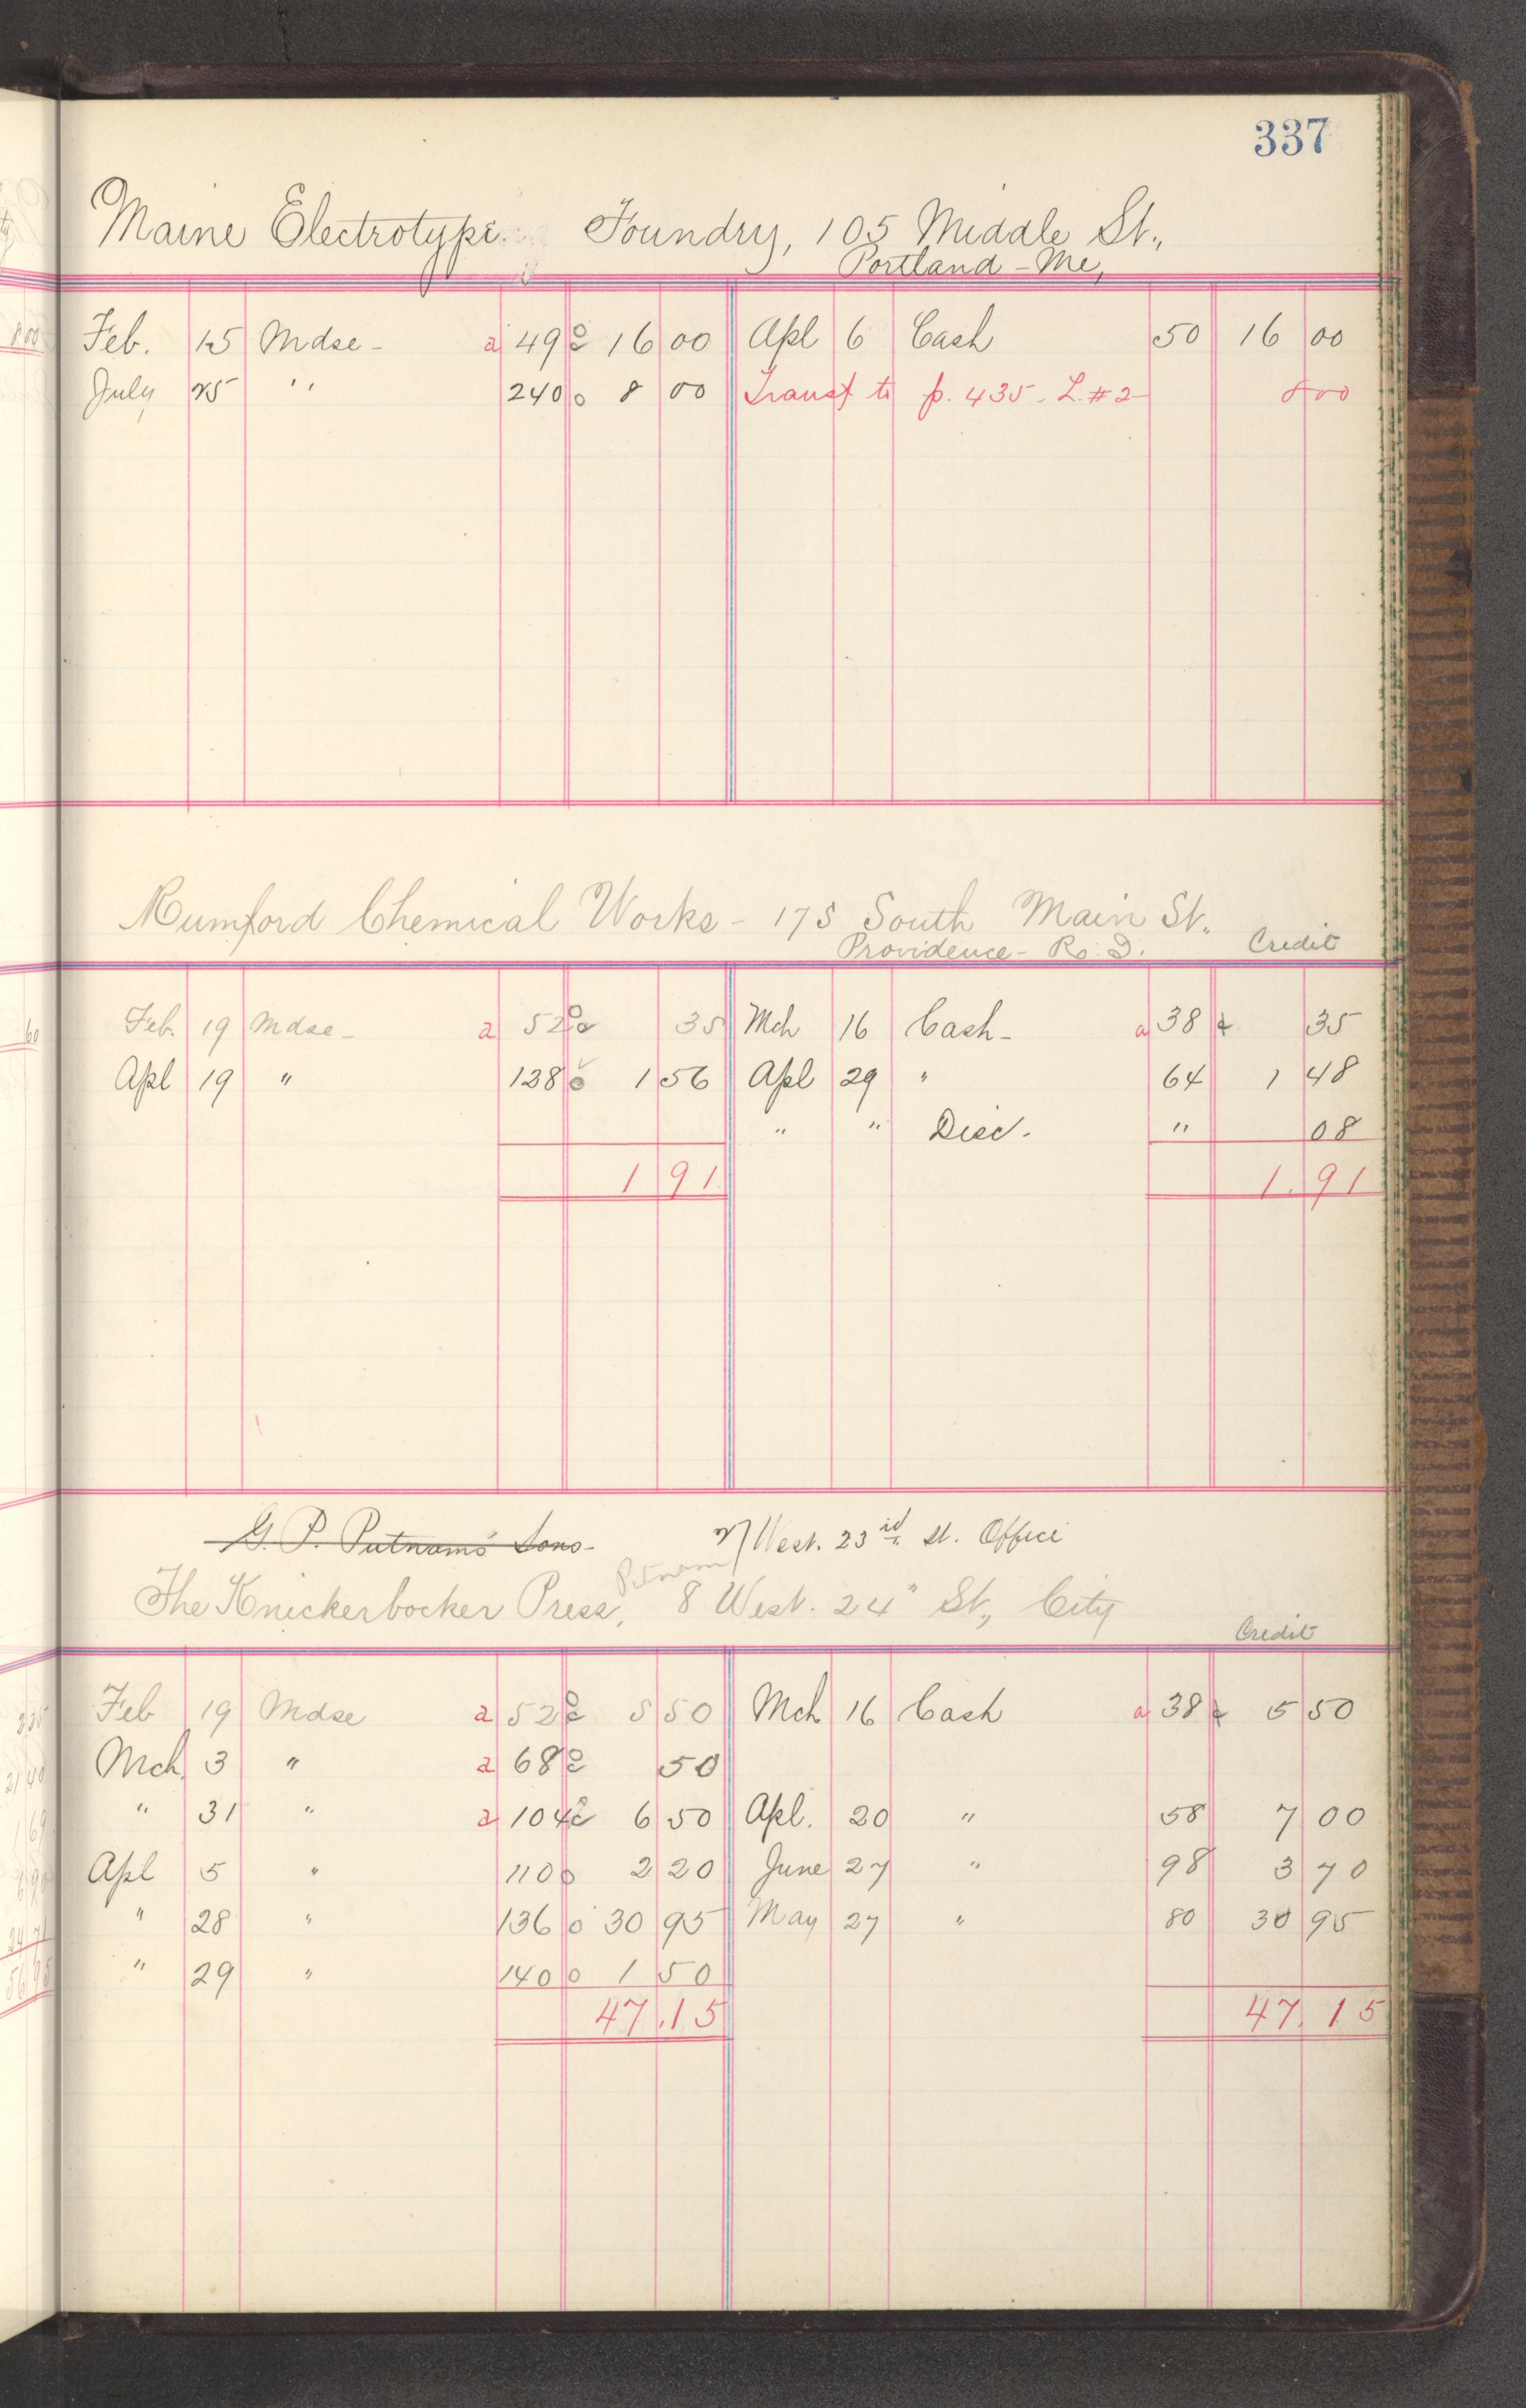 337
Maine Electrotype Foundry, 105 Middle St.,
Portland - Me,
Feb. 15 Mdse - a 49 16 00 Apl 6 Cash 50 16 00
July 25 " 240 8 00 Transf to p. 435. L. #2 8 00
Rumford Chemical Works - 175 South Main St.
Providence - R. I. Credit
Feb. 19 Mdse - a 52 35 Mch 16 Cash - a 38 35
Apl 19 " 128 1 56 Apl 29 " 64 1 48
" " Disc. " 08
1 91 1.91
G. P. Putnam's Sons - 27 West. 23rd St. Office
Putnam
The Knickerbocker Press, 8 West. 24" St., City
Credit
Feb 19 Mdse a 52 5 50 Mch 16 Cash a 38 5 50
Mch 3 " a 68 50
" 31 " a 104 6 50 Apl. 20 " 58 7 00
Apl 5 " 110 2 20 June 27 " 98 3 70
" 28 " 136 30 95 May 27 " 80 30 95
" 29 " 140 1 50
47.15 47.15